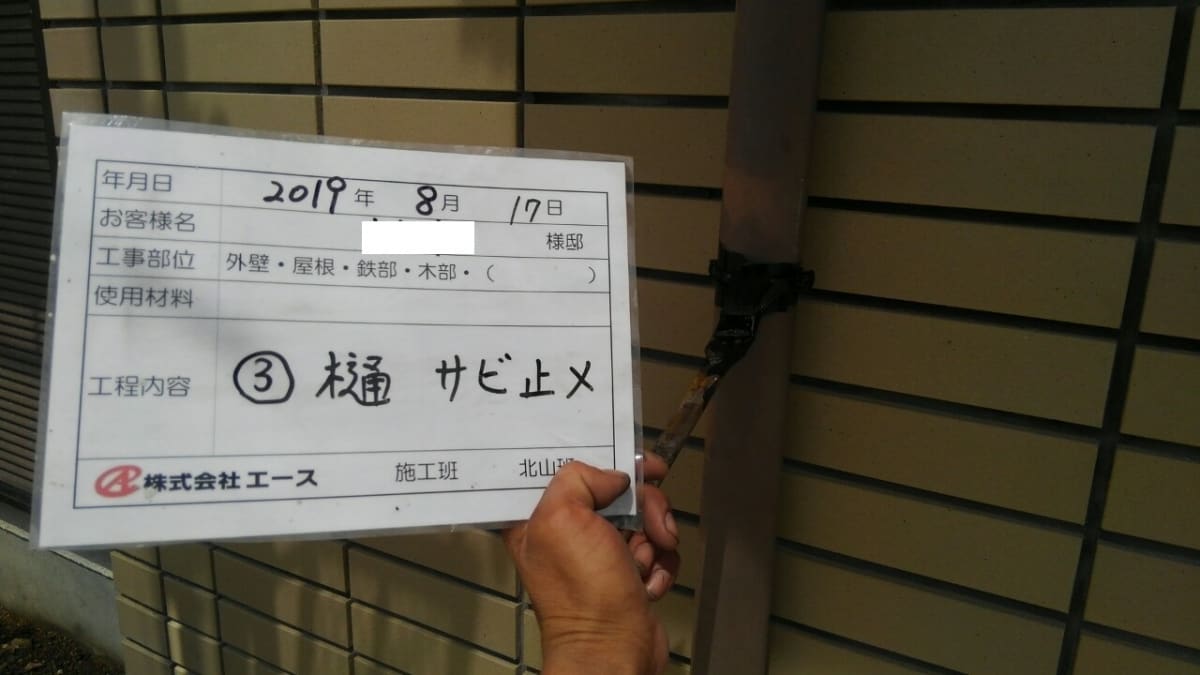 年月日 2019年 8月 17日
お客様名 様邸
工事部位 外壁・屋根・鉄部・木部・( )
使用材料
工程内容 ③ 樋 サビ止メ
株式会社エース 施工班 北山班